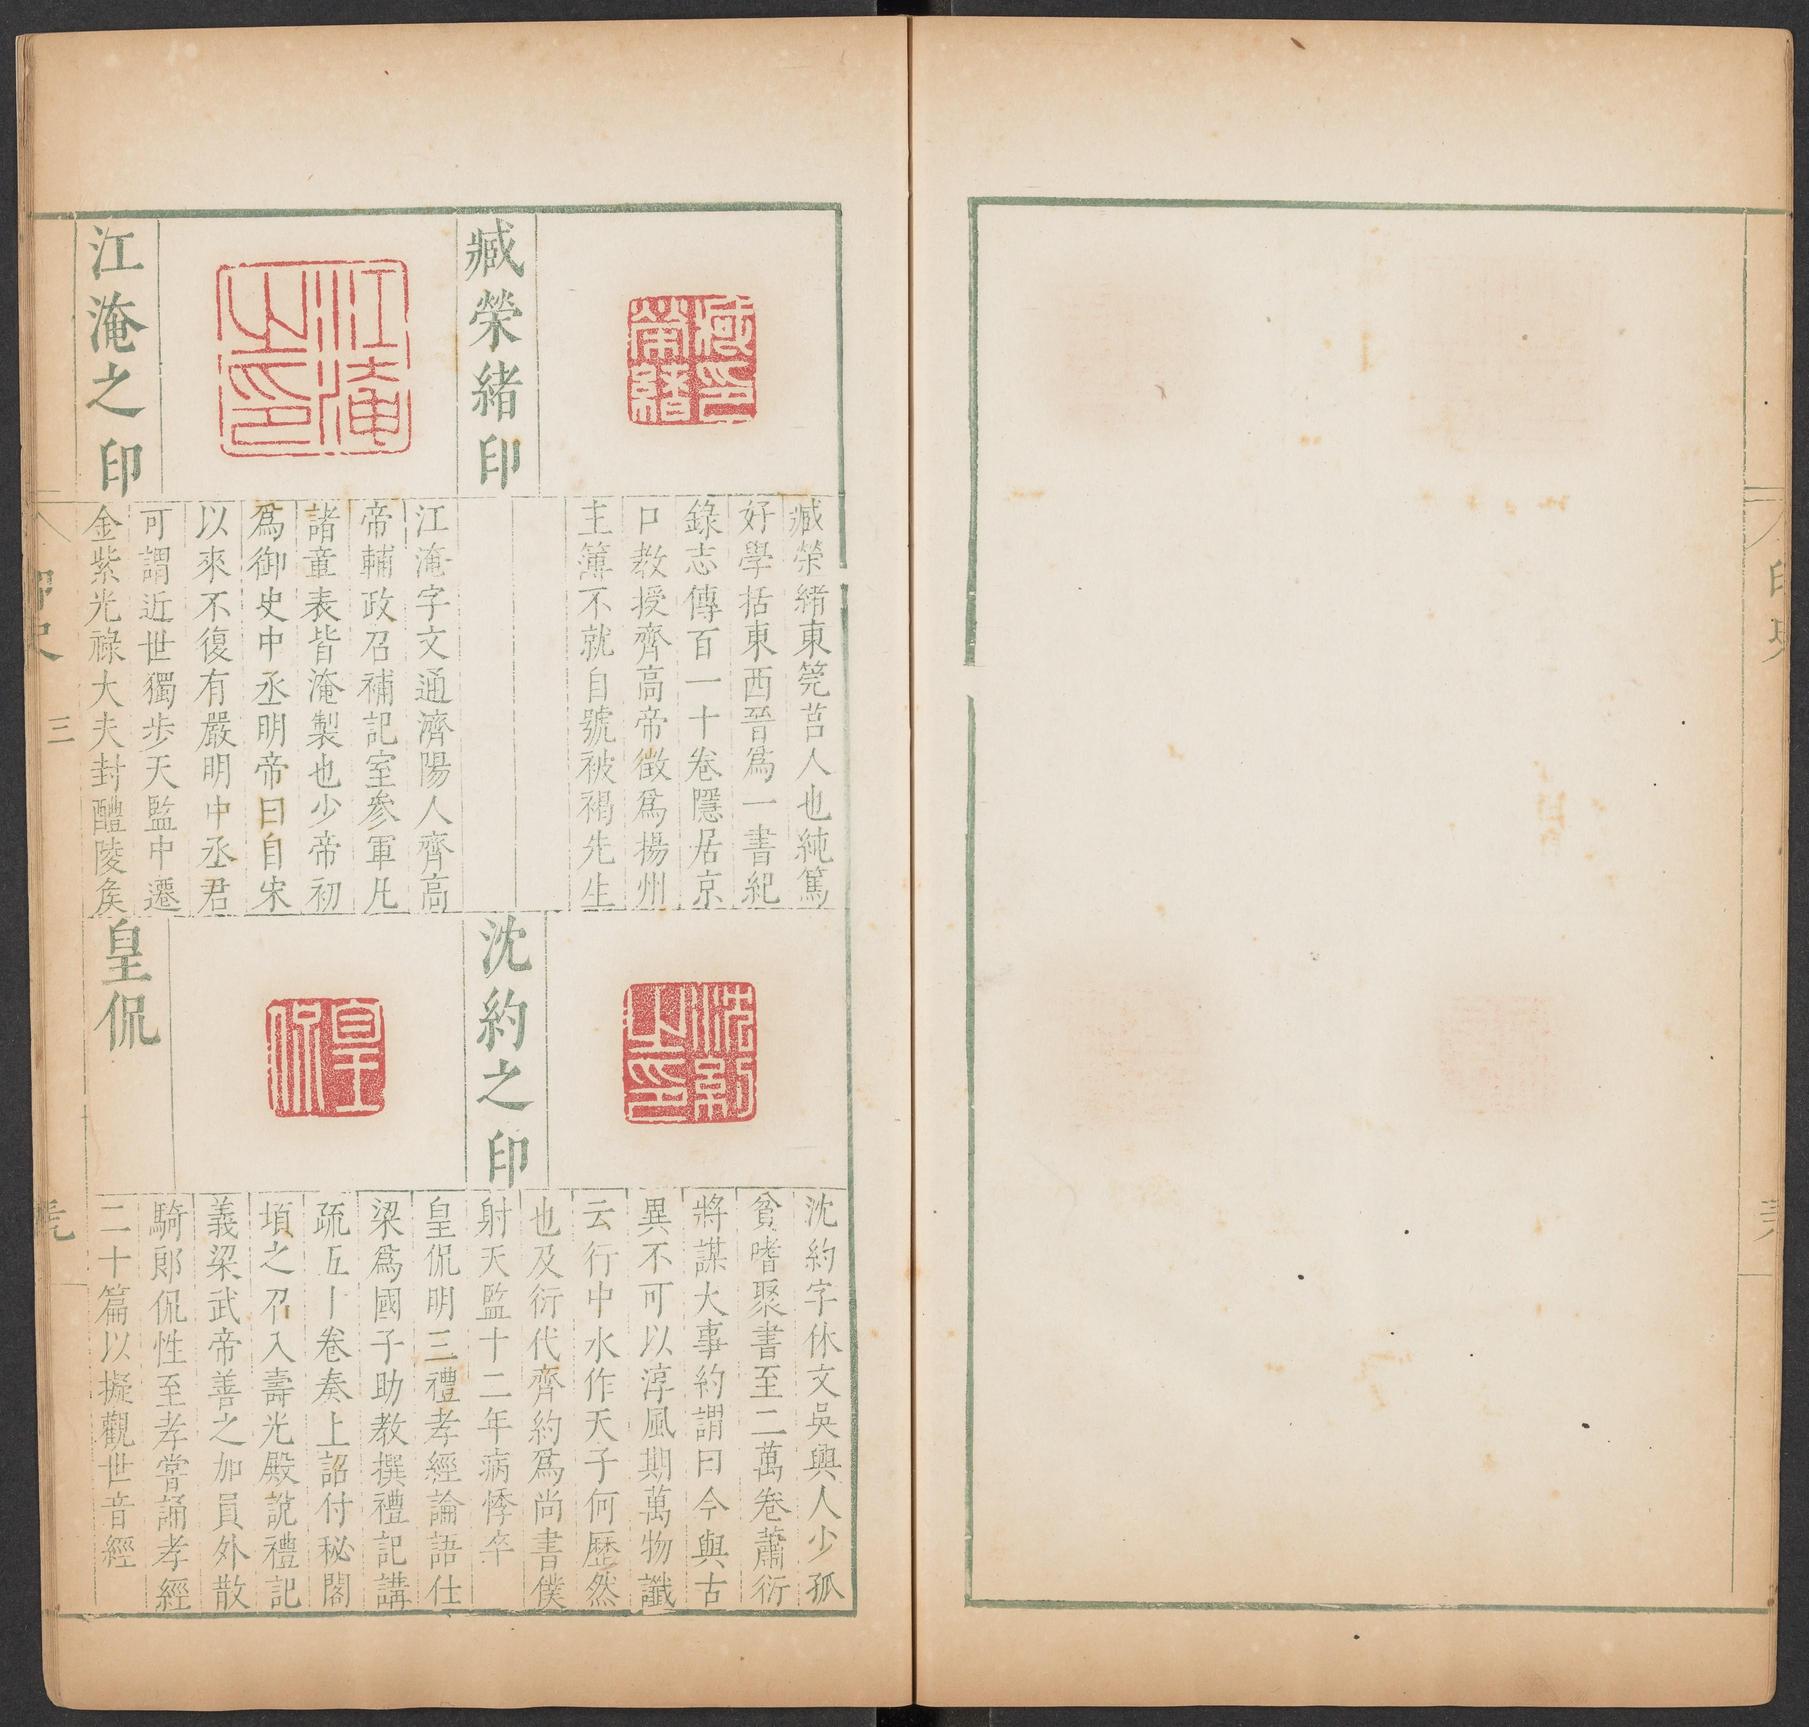 臧榮緒印
臧榮緒印
臧榮緒東莞莒人也純篤
好學括東西晉爲一書紀
錄志傳百一十卷隱居京
口教授齊高帝徵爲揚州
主簿不就自號被褐先生
江淹之印
江淹之印
江淹字文通濟陽人齊高
帝輔政召補記室參軍凡
諸章表皆淹製也少帝初
爲御史中丞明帝曰自宋
以來不復有嚴明中丞君
可謂近世獨步天監中遷
金紫光祿大夫封醴陵矦
沈約之印
沈約之印
沈約字休文吳興人少孤
貧嗜聚書至二萬卷蕭衍
將謀大事約謂曰今與古
異不可以淳風期萬物讖
云行中水作天子何歷然
也及衍代齊約爲尚書僕
射天監十二年病悸卒
皇侃
皇侃
皇侃明三禮孝經論語仕
梁爲國子助教撰禮記講
疏五十卷奏上詔付秘閣
頃之召入壽光殿說禮記
義梁武帝善之加員外散
騎郎侃性至孝嘗誦孝經
二十篇以擬觀世音經
印史
三